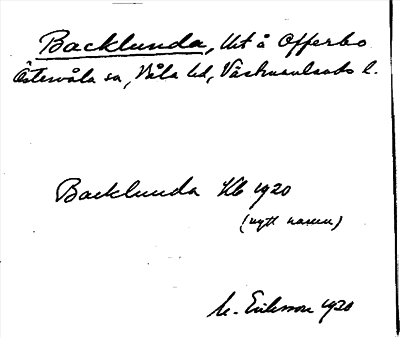 Backlunda, lht å Offerbo
Östervåla sn, Våla hd, Västmanlands l.
Backlunda Kb 1920
(nytt namn)
M. Eriksson 1920